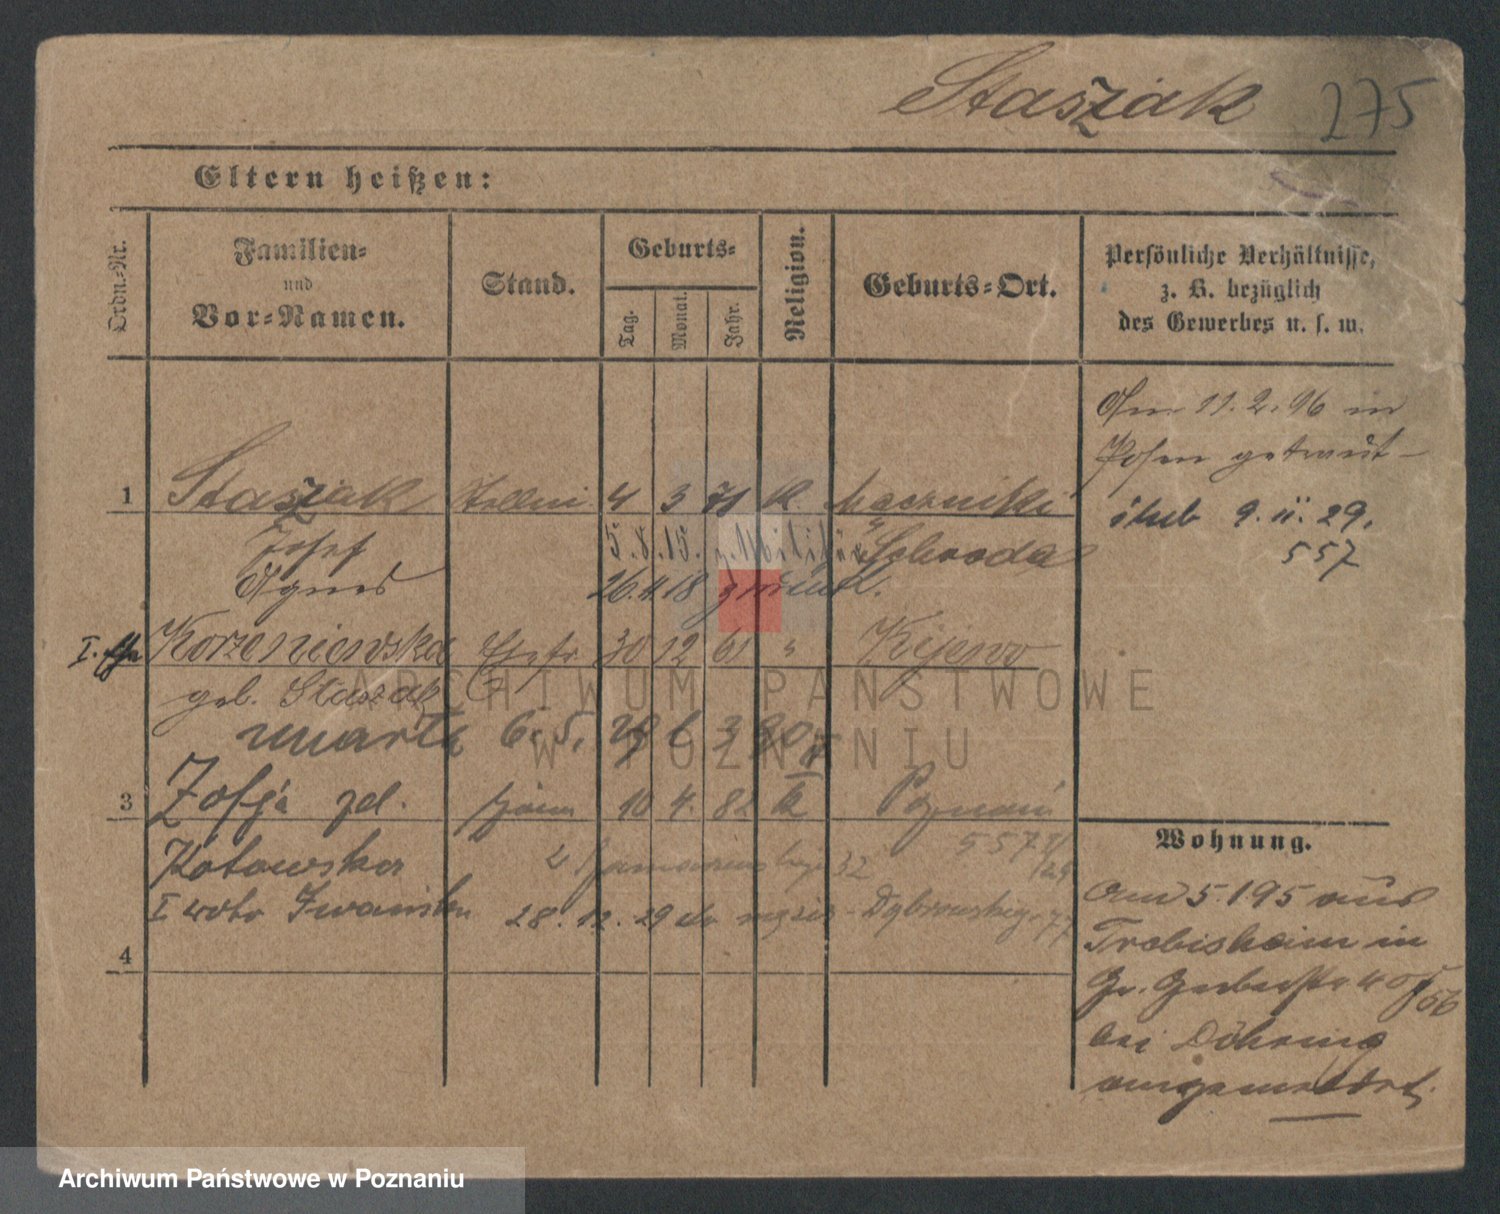 Staszak 275
Eltern heißen:
Ordn.-Nr.
Familien-
und
Vor-Namen.
Stand.
Geburts-
Tag.
Monat.
Jahr.
Religion.
Geburts-Ort.
Persönliche Verhältnisse,
z. B. bezüglich
des Gewerbes u. s. w.
Am 11.2.96 in
Posen getraut
1 Staszak 4 3 71 K. Mączniki
ślub 9.II.29.
557
Josef 5.8.15. z. Militär Schroda
Agnes 26.11.18 zurück.
I. Korzeniewska Ehefr. 30 12 61 " Kijewo
geb. Staszak
umarła 6.5.
3 Zofja zd. 10 4. 82 k Poznań
Kotowska
557
I voto Iwańska 28.12.29 do męża - Dąbrowskiego 77
4
Wohnung.
Am 5.1.95 aus
in
Gr. Gerberstr 40
bei Döhring
angemeldet.
ARCHIWUM PAŃSTWOWE
W POZNANIU
Archiwum Państwowe w Poznaniu